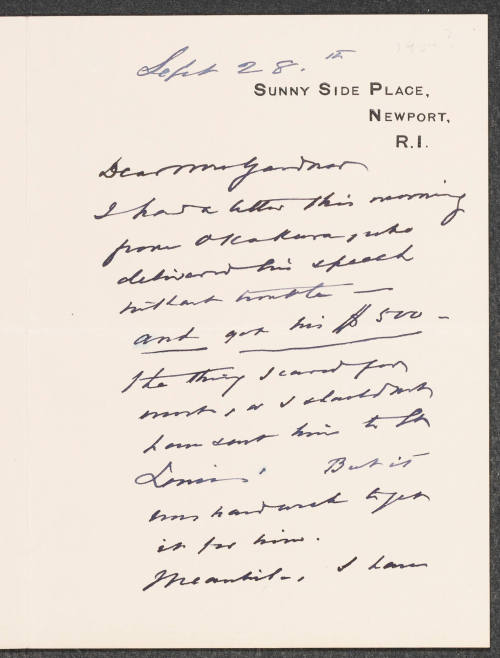 1904?
Sept 28.th
SUNNY SIDE PLACE,
NEWPORT,
R.I.
Dear Mrs Gardner
I had a letter this morning
from Okakura, who
delivered his speech
without trouble —
and got his $500 —
the thing I cared for
most, or I should not
have sent him to St
Louis. But it
was hard work to get
it for him.
Meanwhile, I have